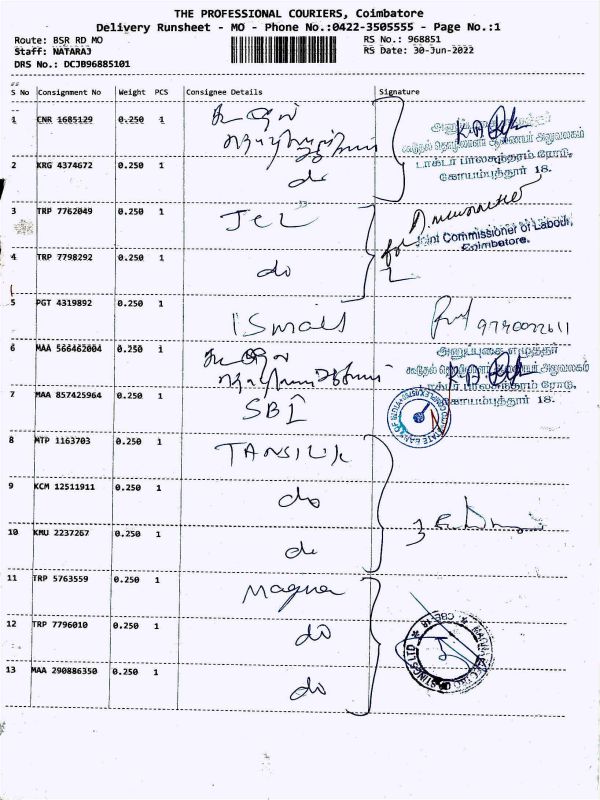 THE PROFESSIONAL COURIERS, Coimbatore
Delivery Runsheet - MO - Phone No.:0422-3505555 - Page No.:1
Route: BSR RD MO RS No.: 968851
Staff: NATARAJ RS Date: 30-Jun-2022
DRS No.: DCJB96885101
S No Consignment No Weight PCS Consignee Details Signature
1 CNR 1685129 0.250 1
அனுப்புகை எழுத்தர்
கூடுதல் தொழிலாளர் ஆணையர் அலுவலகம்
டாக்டர் பாலசுந்தரம் ரோடு,
கோயம்புத்தூர் 18.
2 KRG 4374672 0.250 1 do
3 TRP 7762049 0.250 1 JCL
for Joint Commissioner of Labour,
Coimbatore.
4 TRP 7798292 0.250 1 do
5 PGT 4319892 0.250 1 ISmall
6 MAA 566462004 0.250 1
அனுப்புகை எழுத்தர்
கூடுதல் தொழிலாளர் ஆணையர் அலுவலகம்
டாக்டர் பாலசுந்தரம் ரோடு,
கோயம்புத்தூர் 18.
7 MAA 857425964 0.250 1 SBI
STATE BANK OF INDIA
8 MTP 1163703 0.250 1
9 KCM 12511911 0.250 1 do
10 KMU 2237267 0.250 1 do
11 TRP 5763559 0.250 1 Magna
12 TRP 7796010 0.250 1 do
13 MAA 290886350 0.250 1 do